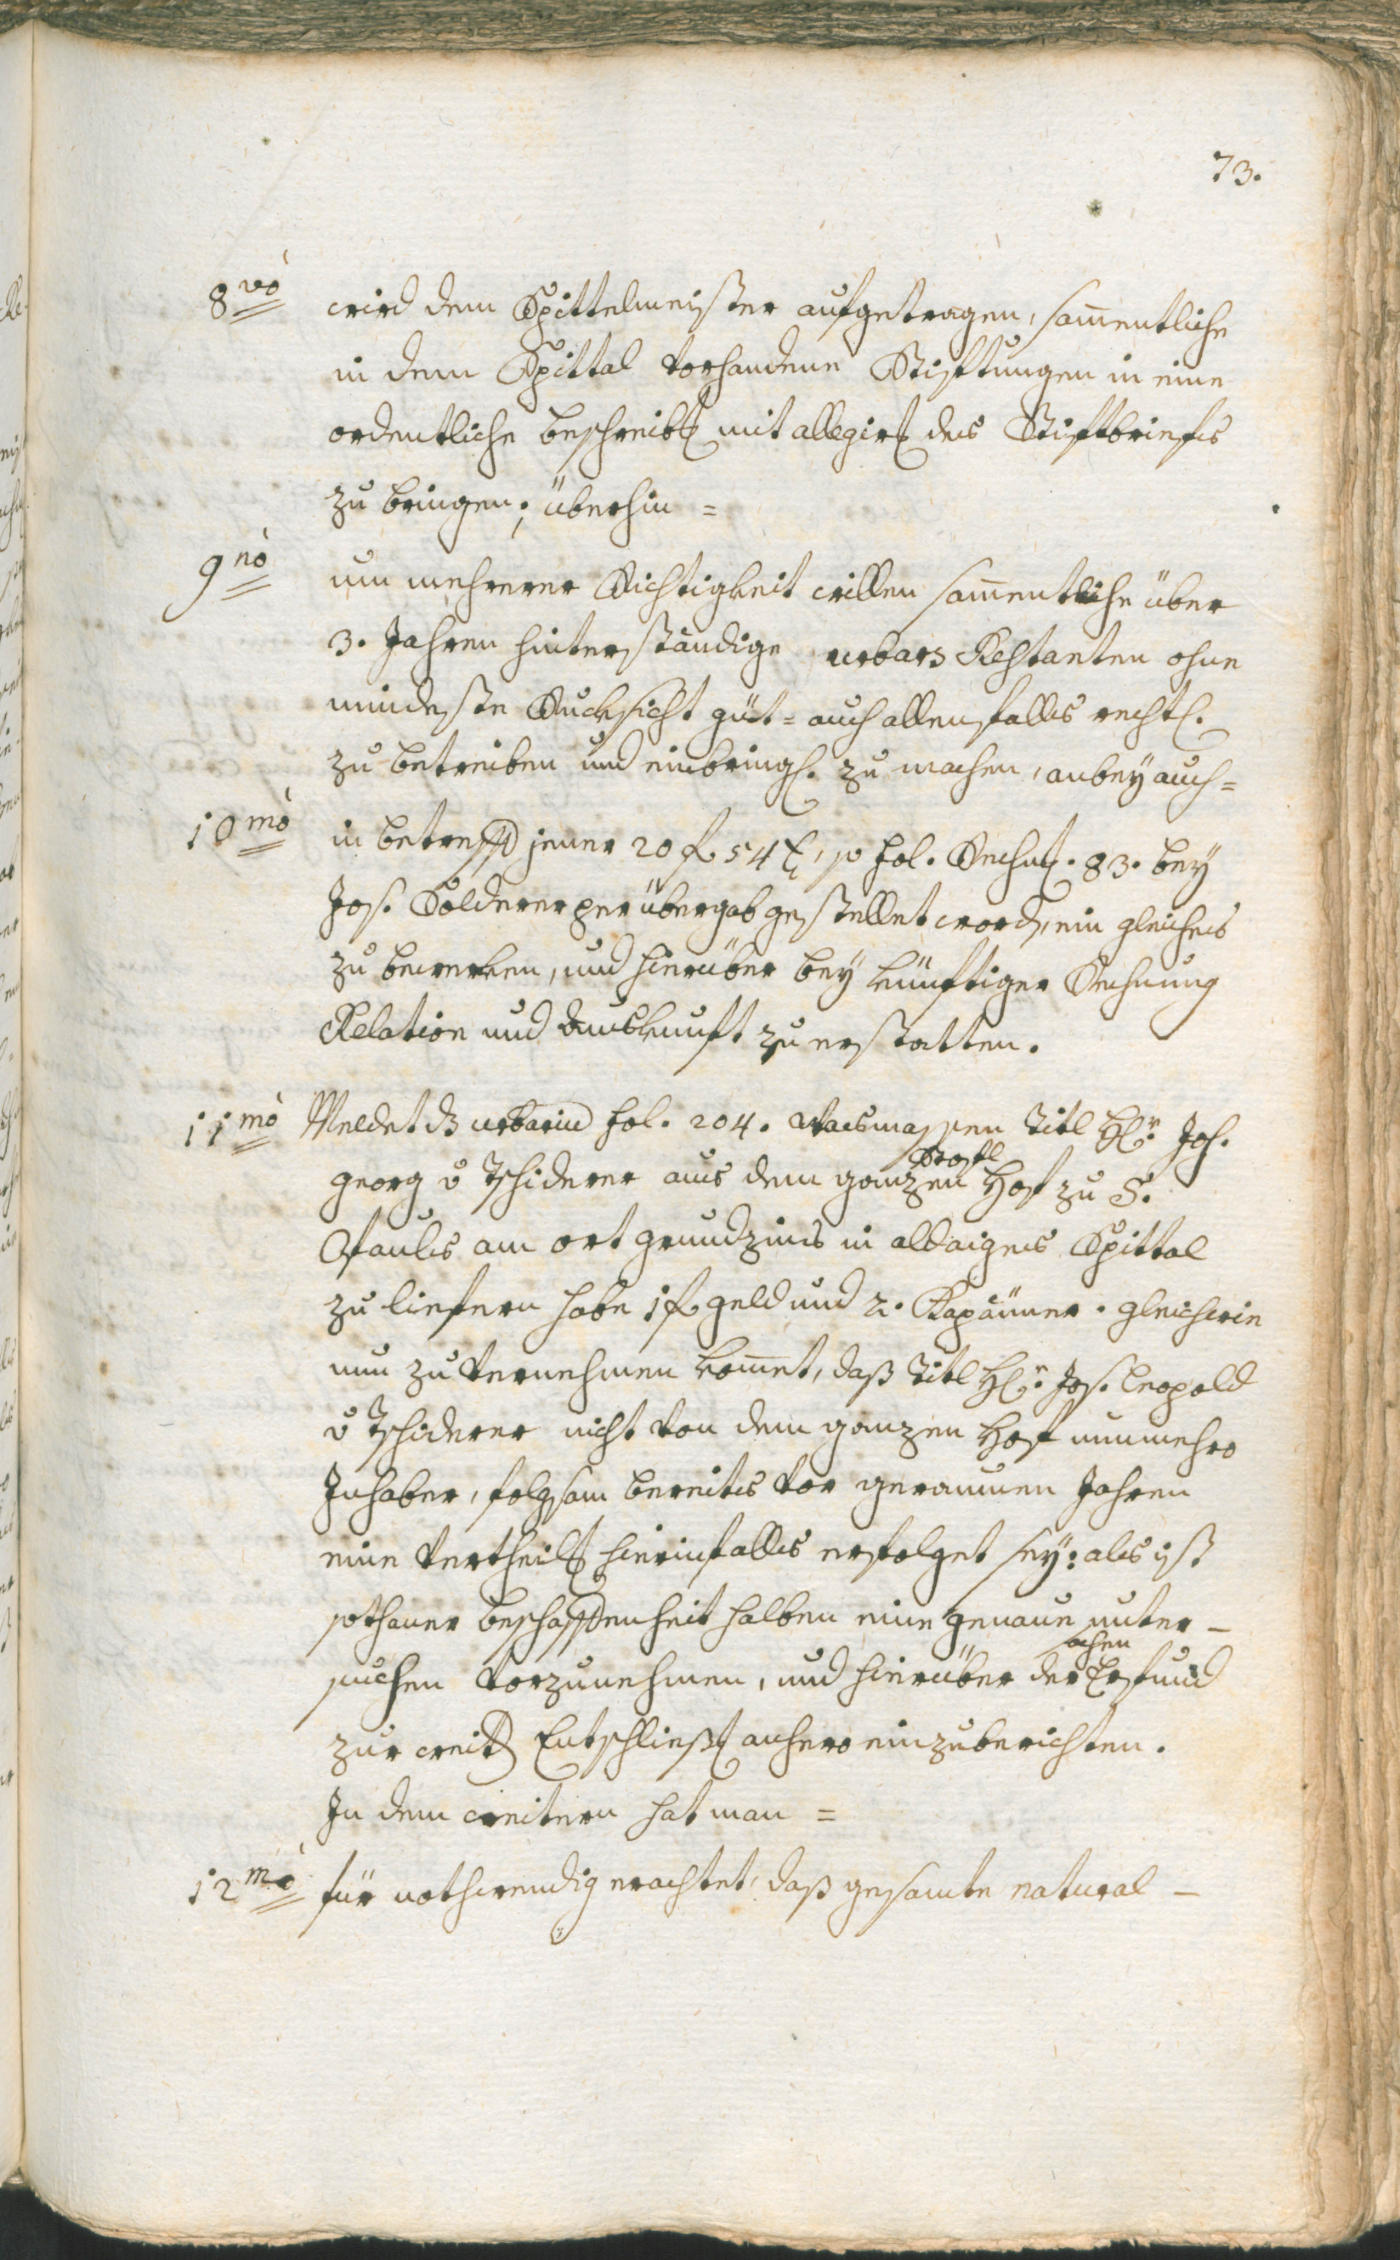 73.
8vo wird dem Spittelmeister aufgetragen, sam̄entliche
in dem Spittal vorhandene Stiftungen in eine
ordentliche beschreibg mit allegirg des Stiftbriefs
zu bringen; überhin =
9no um mehrerer Richtigkeit willen sam̄entliche über
3. Jahren hinterständige urbars Restanten ohne
mindeste Rucksicht güt= auch allenfalls rechtl.
zu betreiben und einbringl. zu machen, anbey auch=
10mo in betreff jener 20 f 54 x, so fol. Rechng. 83. bey
Jos. Solderer per übergab gestellet word, ein gleiches
zu bewerken, und hierüber bey künftiger Rechnung
Relation und Auskunft zu erstatten.
11mo Meldet ds urbarium fol. 204. wasmassen Titl H: Joh.
Georg v Tschiderer aus dem ganzen Hof zu S.
Paulls am ort grundzins in alldaiges Spittal
zu liefern habe 1 f geld und 2. Kapäuner. gleichwie
nun zu vernehmen kom̄et, daß Titl H: Jos. Leopold
v Tschiderer nicht von dem ganzen Hof nunmehro
Inhaber, folgsam bereits vor geraumen Jahren
eine vertheilg hierinfalls erfolget sey: als ist
sothaner beschaffenheit halben eine genaue unter-
suchen vorzunehmen, und hierüber der Erfund
zur weitern Entschließg anhero einzuberichten.
In dem weitern hat man =
12mo für nothwendig erachtet, daß gesamte natural-